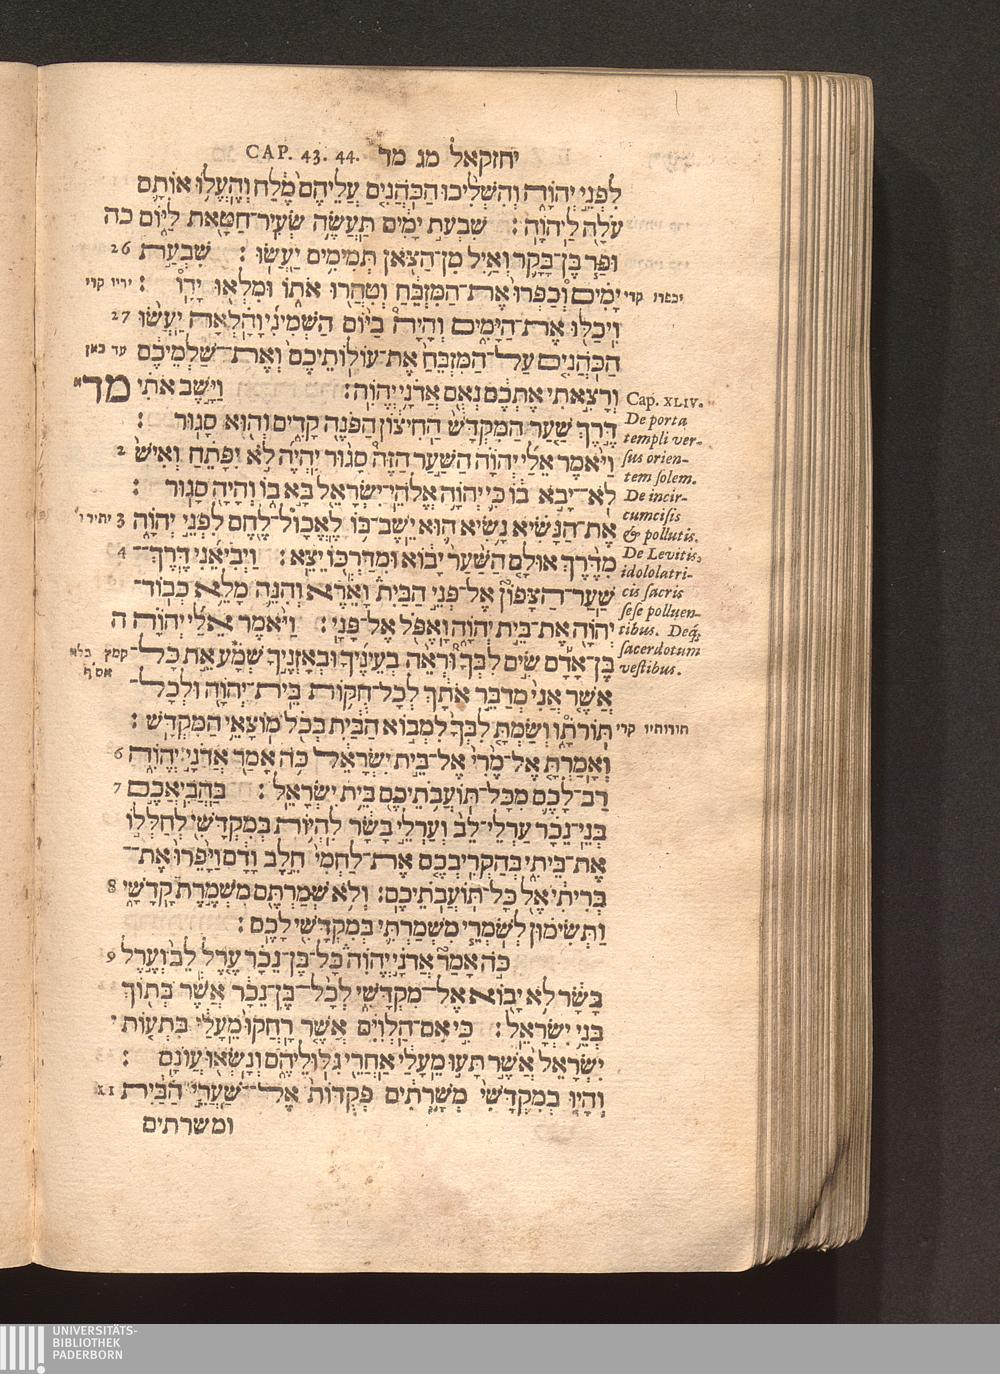 CAP. 43. 44. יחזקאל מג מד
לִפְנֵי יְהוָֹה וְהִשְׁלִיכוּ הַכֹּהֲנִים עֲלֵיהֶם מֶלַח וְהֶעֱלוּ אוֹתָם
עֹלָה לַיהוָֹה : שִׁבְעַת יָמִים תַּעֲשֶׂה שְׂעִיר־חַטָּאת לַיּוֹם כה
וּפַר בֶּן־בָּקָר וְאַיִל מִן־הַצֹּאן תְּמִימִים יַעֲשׂוּ : שִׁבְעַת 26
יכפרו קרי יָמִים וְכִפְּרוּ אֶת־הַמִּזְבֵּחַ וְטִהֲרוּ אֹתוֹ וּמִלְאוּ יָדוֹ : ידיו קרי
וִיכַלּוּ אֶת־הַיָּמִים וְהָיָה בַיּוֹם הַשְּׁמִינִי וָהָלְאָה יַעֲשׂוּ 27
הַכֹּהֲנִים עַל־הַמִּזְבֵּחַ אֶת־עוֹלוֹתֵיכֶם וְאֶת־שַׁלְמֵיכֶם עד כאן
וְרָצִאתִי אֶתְכֶם נְאֻם אֲדֹנָי יֱהוִֹה : וַיָּשֶׁב אֹתִי מד
Cap. XLIV.
דֶּרֶךְ שַׁעַר הַמִּקְדָּשׁ הַחִיצוֹן הַפֹּנֶה קָדִים וְהוּא סָגוּר :
De porta
templi ver-
וַיֹּאמֶר אֵלַי יְהוָֹה הַשַּׁעַר הַזֶּה סָגוּר יִהְיֶה לֹא יִפָּתֵחַ וְאִישׁ 2
sus orien-
tem solem.
לֹא־יָבֹא בוֹ כִּי יְהוָֹה אֱלֹהֵי־יִשְׂרָאֵל בָּא בוֹ וְהָיָה סָגוּר :
De incir-
cumcisis
אֶת־הַנָּשִׂיא נָשִׂיא הוּא יֵשֶׁב־בּוֹ לֶאֱכָול־לֶחֶם לִפְנֵי יְהוָֹה 3 יתיר ו׳
& pollutis.
מִדֶּרֶךְ אוּלָם הַשַּׁעַר יָבוֹא וּמִדַּרְכּוֹ יֵצֵא : וַיְבִיאֵנִי דֶּרֶךְ־ 4
De Levitis,
idololatri-
שַׁעַר־הַצָּפוֹן אֶל־פְּנֵי הַבַּיִת וָאֵרֶא וְהִנֵּה מָלֵא כְבוֹד־
cis sacris
sese polluen-
יְהוָֹה אֶת־בֵּית יְהוָֹה וָאֶפֹּל אֶל־פָּנָי : וַיֹּאמֶר אֵלַי יְהוָֹה ה
tibus. Deq;
בֶּן־אָדָם שִׂים לִבְּךָ וּרְאֵה בְעֵינֶיךָ וּבְאָזְנֶיךָ שְּׁמָע אֵת כָּל־ קמץ בלא אס״ף
sacerdotum
vestibus.
אֲשֶׁר אֲנִי מְדַבֵּר אֹתָךְ לְכָל־חֻקּוֹת בֵּית־יְהוָֹה וּלְכָל־
תורותיו קרי תּוֹרֹתָו וְשַׂמְתָּ לִבְּךָ לִמְבוֹא הַבַּיִת בְּכֹל מוֹצָאֵי הַמִּקְדָּשׁ :
וְאָמַרְתָּ אֶל־מֶרִי אֶל־בֵּית יִשְׂרָאֵל כֹּה אָמַר אֲדֹנָי יֱהוִֹה 6
רַב־לָכֶם מִכָּל־תּוֹעֲבֹתֵיכֶם בֵּית יִשְׂרָאֵל : בַּהֲבִיאֲכֶם 7
בְּנֵי־נֵכָר עַרְלֵי־לֵב וְעַרְלֵי בָשָׂר לִהְיוֹת בְּמִקְדָּשִׁי לְחַלְּלוֹ
אֶת־בֵּיתִי בְּהַקְרִיבְכֶם אֶת־לַחְמִי חֵלֶב וָדָם וַיָּפֵרוּ אֶת־
בְּרִיתִי אֶל כָּל־תּוֹעֲבֹתֵיכֶם : וְלֹא שְׁמַרְתֶּם מִשְׁמֶרֶת קָדָשָׁי 8
וַתְּשִׂימוּן לְשֹׁמְרֵי מִשְׁמַרְתִּי בְּמִקְדָּשִׁי לָכֶם :
כֹּה אָמַר אֲדֹנָי יֱהוִֹה כָּל־בֶּן־נֵכָר עֶרֶל לֵב וְעֶרֶל 9
בָּשָׂר לֹא יָבוֹא אֶל־מִקְדָּשִׁי לְכָל־בֶּן־נֵכָר אֲשֶׁר בְּתוֹךְ
בְּנֵי יִשְׂרָאֵל : כִּי אִם־הַלְוִיִּם אֲשֶׁר רָחֲקוּ מֵעָלַי בִּתְעוֹת י
יִשְׂרָאֵל אֲשֶׁר תָּעוּ מֵעָלַי אַחֲרֵי גִּלּוּלֵיהֶם וְנָשְׂאוּ עֲוֹנָם :
וְהָיוּ בְמִקְדָּשִׁי מְשָׁרְתִים פְּקֻדּוֹת אֶל־שַׁעֲרֵי הַבַּיִת XI
ומשרתים
UNIVERSITÄTS-
BIBLIOTHEK
PADERBORN